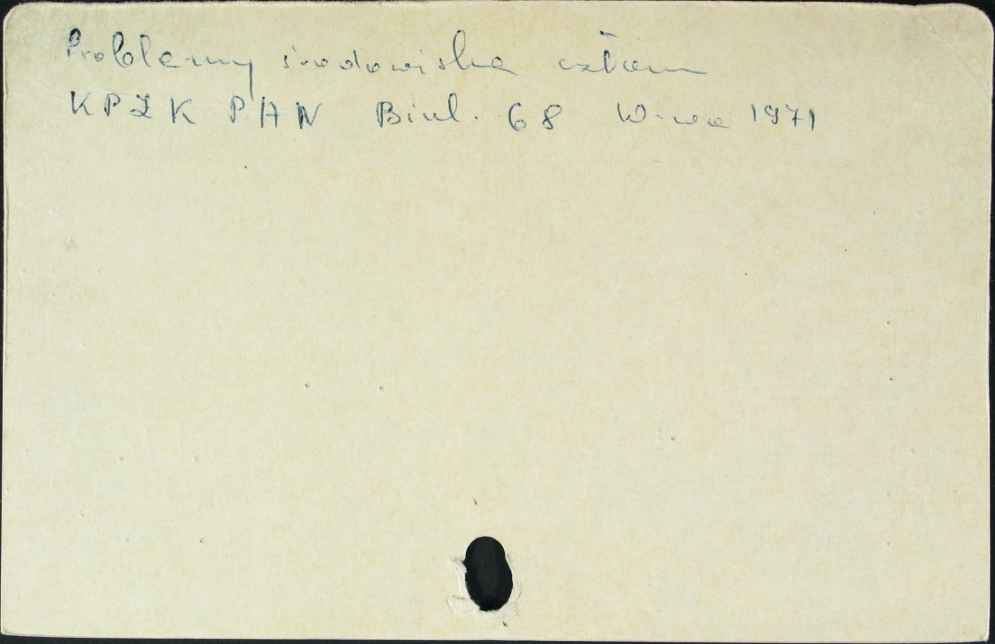 Problemy środowiska człow
KPZK PAN Biul. 68 W-wa 1971